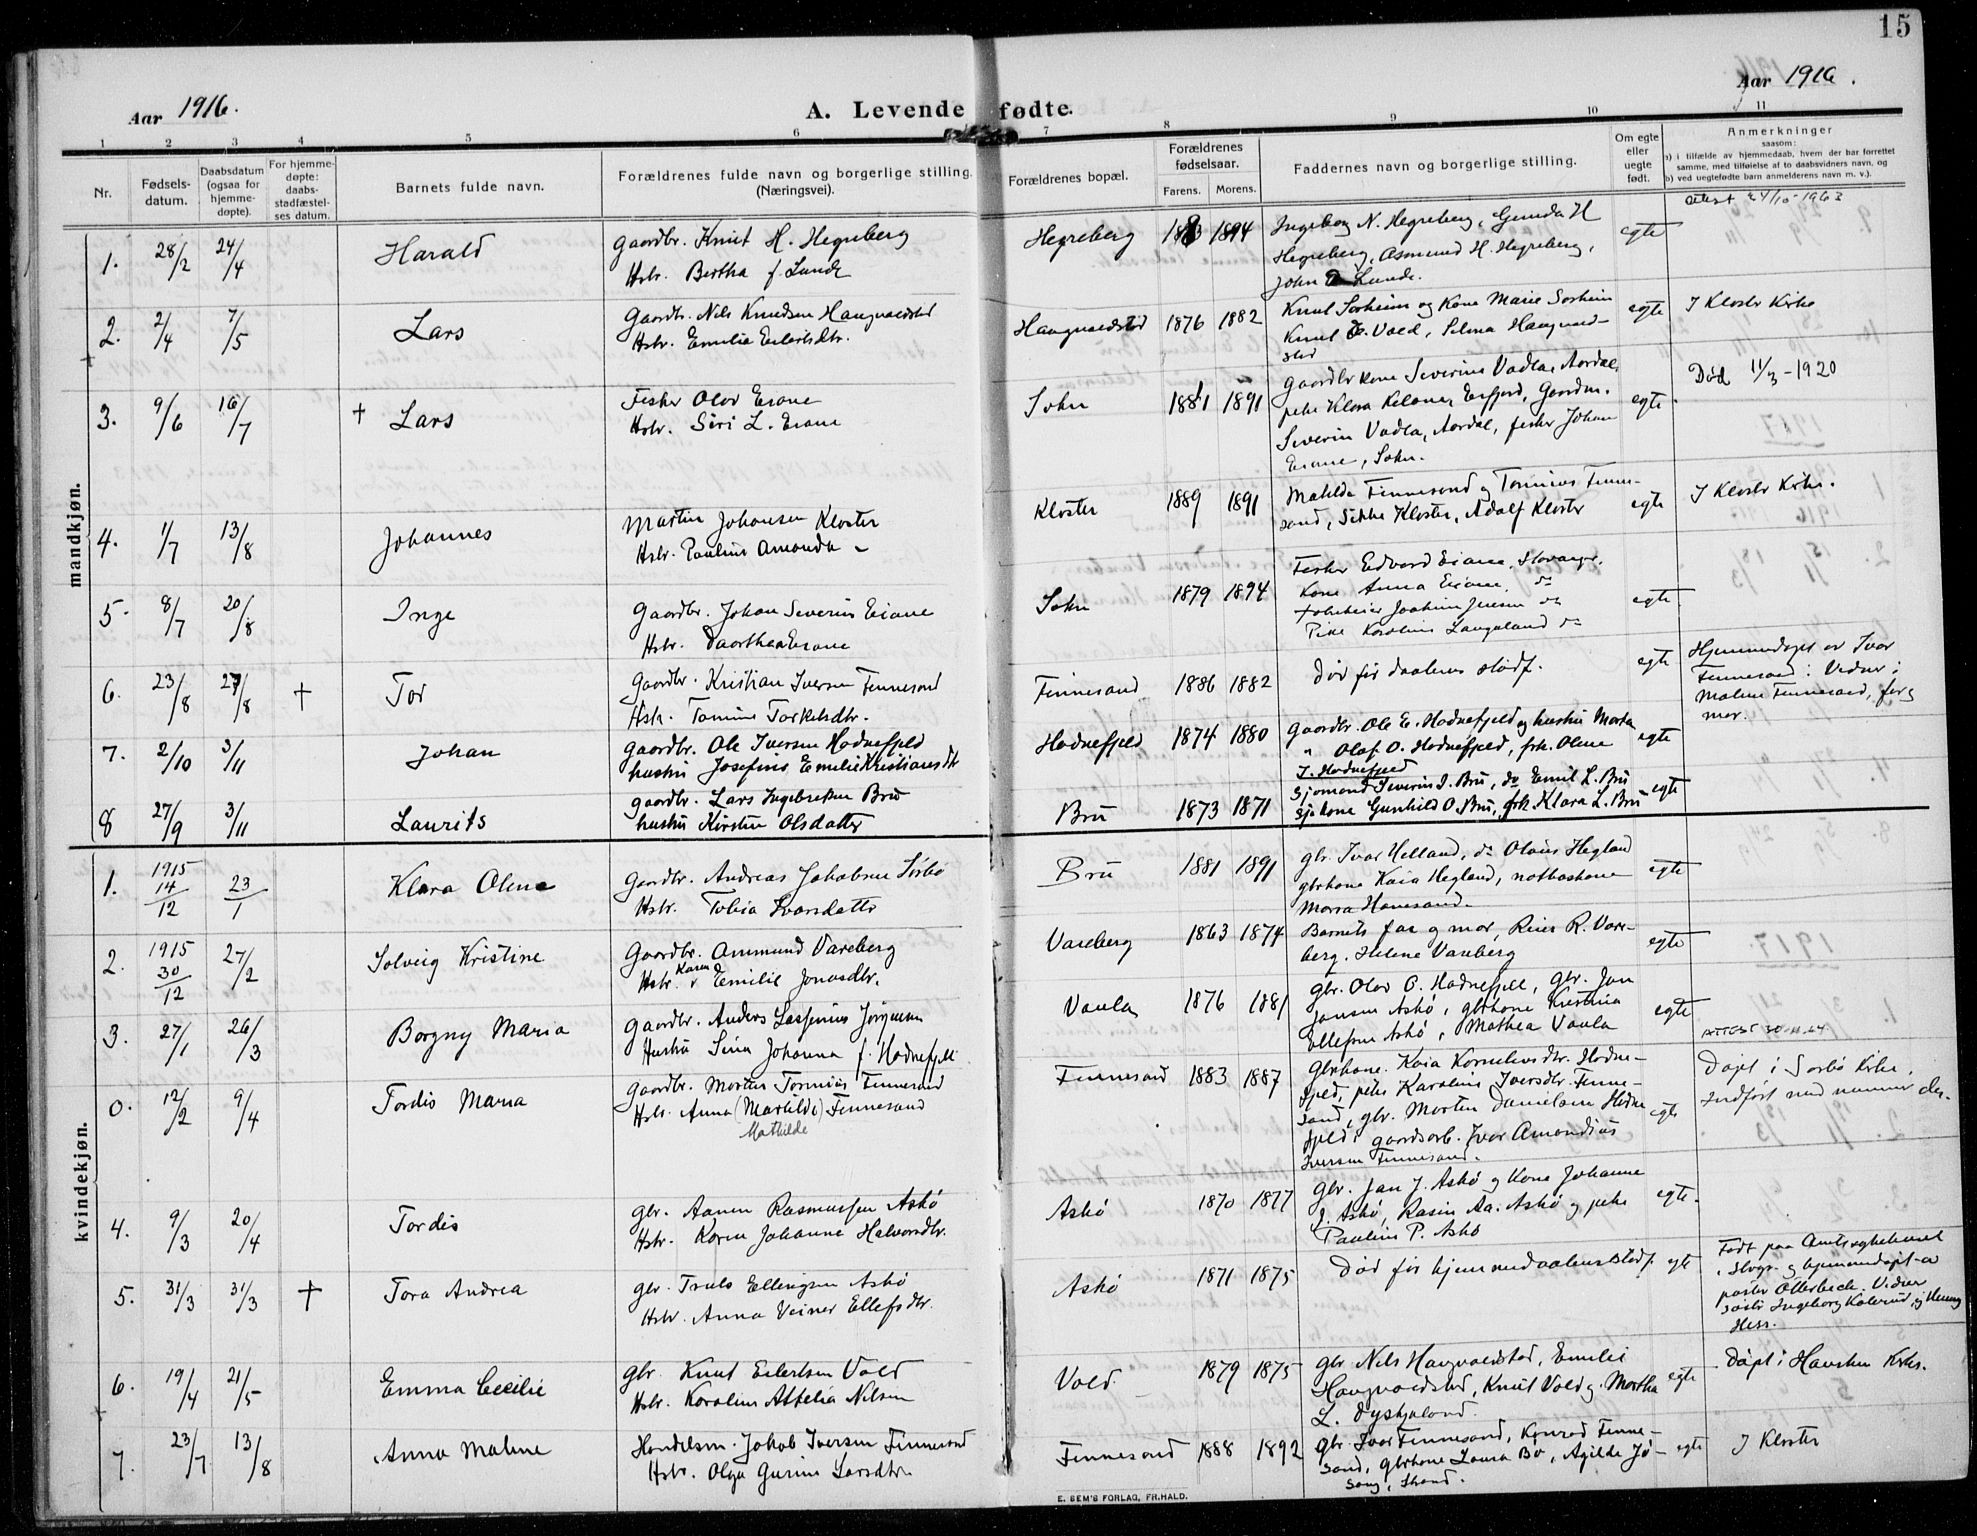 15
Aar 1916.
A. Levende fødte.
Aar 1916.
1 2 3 4 5 6 7 8 9 10 11
Nr.
Fødsels-
datum.
Daabsdatum
(ogsaa for
hjemme-
døpte).
For hjemme-
døpte:
daabs-
stadfæstel-
ses datum.
Barnets fulde navn.
Forældrenes fulde navn og borgerlige stilling.
(Næringsvei).
Forældrenes bopæl.
Forældrenes
fødselsaar.
Farens. Morens.
Faddernes navn og borgerlige stilling.
Om egte
eller
uegte
født.
Anmerkninger
saasom:
a) i tilfælde av hjemmedaab, hvem der har forrettet
samme, med tilføielse af to daabsvidners navn, og
b) ved uegtefødte barn anmelderens navn m. v.).
mandkjøn.
1. 28/2 24/4 Harald
Gaardbr. Knut H. Hegreberg
Hstr. Bertha f. Lunde
Hegreberg 1883 1894
Ingeborg N. Hegreberg, Gunda H
Hegreberg, Asmund H. Hegreberg,
John Lunde.
egte
attest 24/10-1963
2. 2/4 7/5 Lars
Gaardbr. Nils Knudsen Haugvaldstad
Hstr. Emilie Eilertsdtr.
Haugvaldstad 1876 1882
Knut Sørheim og Kone Marie Sørheim
Knut E. Vold, Selma Haugvald-
stad
egte
I Kloster Kirke
3. 9/6 16/7 † Lars
Fisker Olav Eiane
Hstr. Siri L. Eiane
Sokn 1881 1891
Gaardbr kone Severine Vadla, Aardal,
pike Klara Erfjord, Gaardm.
Severin Vadla, Aardal, fisker Johan
Eiane, Sokn.
egte
Død 11/3-1920
4. 1/7 13/8 Johannes
Martin Johansen Kloster
Hstr. Pauline Amanda -
Kloster 1889 1891
Matilda Finnesand og Tonnius Finne-
sand, Sikke Kloster, Adolf Kloster
egte
I Kloster Kirke.
5. 8/7 20/8 Inge
Gaardbr. Johan Severin Eiane
Hstr. Daarthea Eiane
Sokn 1879 1894
Fisker Edvard Eiane, Stavanger.
Kone Anna Eiane, do
Joakim Jensen do
Pike Karoline Langeland do
egte
6. 23/8 27/8 † Tor
Gaardbr. Kristian Iversen Finnesand
Hstr. Tomine Torkelsdtr.
Finnesand 1886 1882
Død før daabens stadf.
egte
Hjemmedøpt av Ivar
Finnesand: Vidner:
Malene Finnesand, far og
mor.
7. 2/10 3/11 Johan
Gaardbr. Ole Iversen Hodnefjeld
hustru Josefine Emelie Kristiansdtr
Hodnefjeld 1874 1880
Gaardbr. Ole E. Hodnefjeld og hustru Marta
" Olaf O. Hodnefjeld, frk. Olene
I. Hodnefjeld
egte
8 27/9 3/11 Laurits
gaardbr. Lars Ingebretsen Bru
hustru Kirstine Olsdatter
Bru 1873 1871
Sjømand Severin I. Bru, do Emil L. Bru
sjøkone Gunhild O. Bru, frk Klara L. Bru
egte
kvindekjøn.
1. 1915 14/12 23/1 Klara Olene
Gaardbr. Andreas Jakobsen Sørbø
Hstr. Tobia Ivarsdatter
Bru 1881 1891
gbr. Ivar Helland, do Olaus Hegland
gbrkone Kaia Hegland, notbaskone
Marsa Hanesand.
egte
2. 1915 30/12 27/2 Solveig Kristine
Gaardbr. Ammund Vareberg
Hstr. Karen Emilie Jonasdtr.
Vareberg 1863 1874
Barnets far og mor, Reier R. Vare-
berg. Helene Vareberg
egte
3. 27/1 26/3 Borgny Maria
Gaardbr. Anders Jørgensen
Hustru Sina Johanna f. Hodnefjell
Vaula 1876 1881
gbr. Olav O. Hodnefjell, gbr. Jan
Jansen Askø, gbrkone Kristina
Ellefsen Askø, Mathea Vaula
egte
ATTEST 30.11.64
0. 12/2 9/4 Tordis Maria
Gaardbr. Morten Tonnius Finnesand
Hstr. Anna (Martilde) Finnesand
Mathilde
Finnesand 1883 1887
Gbrkone. Kaia Korneliusdtr. Hodne-
fjeld, pike Karoline Iversdtr. Finne-
sand, gbr. Morten Danielsen Hodne
fjeld, gaardsarb. Ivar Amandius
Iversen Finnesand.
egte
Døpt i Sørbø Kirke.
Indført med nummer der.
4. 9/3 20/4 Tordis
gbr. Aanen Rasmussen Askø
Hstr. Karen Johanne Halvorsdtr.
Askø 1870 1877
gbr. Jan J. Askø og Kone Johanne
J. Askø, Rasin Aa. Askø og pike
Pauline P. Askø
egte.
5. 31/3 31/3 † Tora Andrea
gbr. Truls Ellingsen Askø
Hstr. Anna Veiner Ellefsdtr.
Askø 1871 1875
Død før hjemmedaabens stadf.
egte
Født paa Amtssykehuset
i Stvgr. og hjemmedøpt av
pastor Otterbech. Vidner
søster Ingeborg og Henny
Hess.
6. 19/4 21/5 Emma Cecilie
gbr. Knut Eilertsen Vold
Hstr. Karoline Attelia Nilsen
Vold 1879 1875
gbr. Nils Haugvaldstad, Emelie
Haugvaldstad, Knut Vold og Martha
L. Dyskjeland.
egte
Døpt i Hausken Kirke.
7. 23/7 13/8 Anna Malene
Handelsm. Jakob Iversen Finnesand
Hstr. Olga Gurine Larsdtr.
Finnesand 1888 1892
gbr. Ivar Finnesand, Konrad Finne-
sand, gbrkone Laura Bø, Agilde Jø-
sang, Strand.
egte
I Kloster
E. SEM'S FORLAG, FR.HALD.